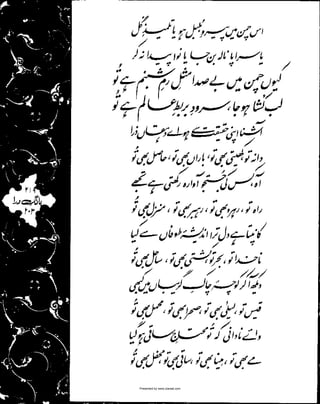 اس چمن میں پیروِ بلبل ہو یا تلمیذِ گل
یا سراپا نالہ بن جا یا نوا پیدا نہ کر
کیوں چمن میں بے صدا مثلِ رمِ شبنم ہے تو
لب کشا ہو جا، سرودِ بربطِ عالم ہے تو
آشنا اپنی حقیقت سے ہو اے دہقاں ذرا
دانہ تو، کھیتی بھی تو، باراں بھی تو، حاصل بھی تو
آہ، کس کی جستجو آوارہ رکھتی ہے تجھے
راہ تو، رہرو بھی تو، رہبر بھی تو، منزل بھی تو
کانپتا ہے دل ترا اندیشۂ طوفاں سے کیا
ناخدا تو، بحر تو، کشتی بھی تو، ساحل بھی تو
دیکھ آ کر کوچۂ چاکِ گریباں میں کبھی
قیس تو، لیلیٰ بھی تو، صحرا بھی تو، محمل بھی تو
وائے نادانی کہ تو محتاجِ ساقی ہو گیا
مے بھی تو، مینا بھی تو، ساقی بھی تو، محفل بھی تو
بانگِ درا
۲۰۳